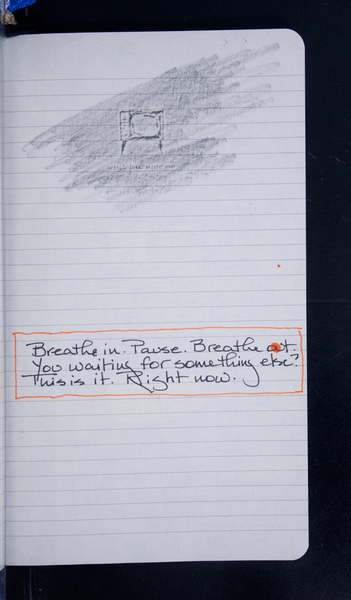 Breathe in. Pause. Breathe out.
You waiting for something else?
This is it. Right now.